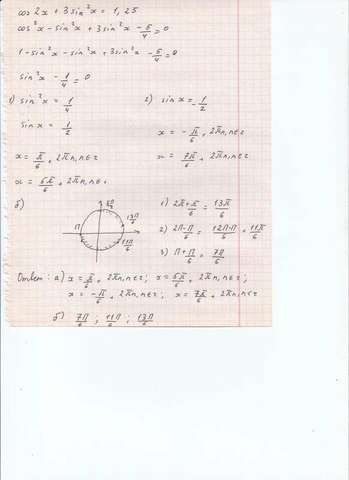 cos2x + 3sin²x = 1,25
cos²x - sin²x + 3sin²x - 5/4 = 0
1 - sin²x - sin²x + 3sin²x - 5/4 = 0
sin²x - 1/4 = 0
1) sin²x = 1/4
sinx = 1/2
x = π/6 + 2πn, n∈z
x = 5π/6 + 2πn, n∈z
2) sinx = -1/2
x = -π/6 + 2πn, n∈z
x = 7π/6 + 2πn, n∈z
б)
π
13π/6
11π/6
1) 2π+π/6 = 13π/6
2) 2π-π/6 = 12π-π/6 = 11π/6
3) π+π/6 = 7π/6
Ответ: а) x = π/6 + 2πn, n∈z; x = 5π/6 + 2πn, n∈z;
x = -π/6 + 2πn, n∈z; x = 7π/6 + 2πn, n∈z
б) 7π/6; 11π/6; 13π/6